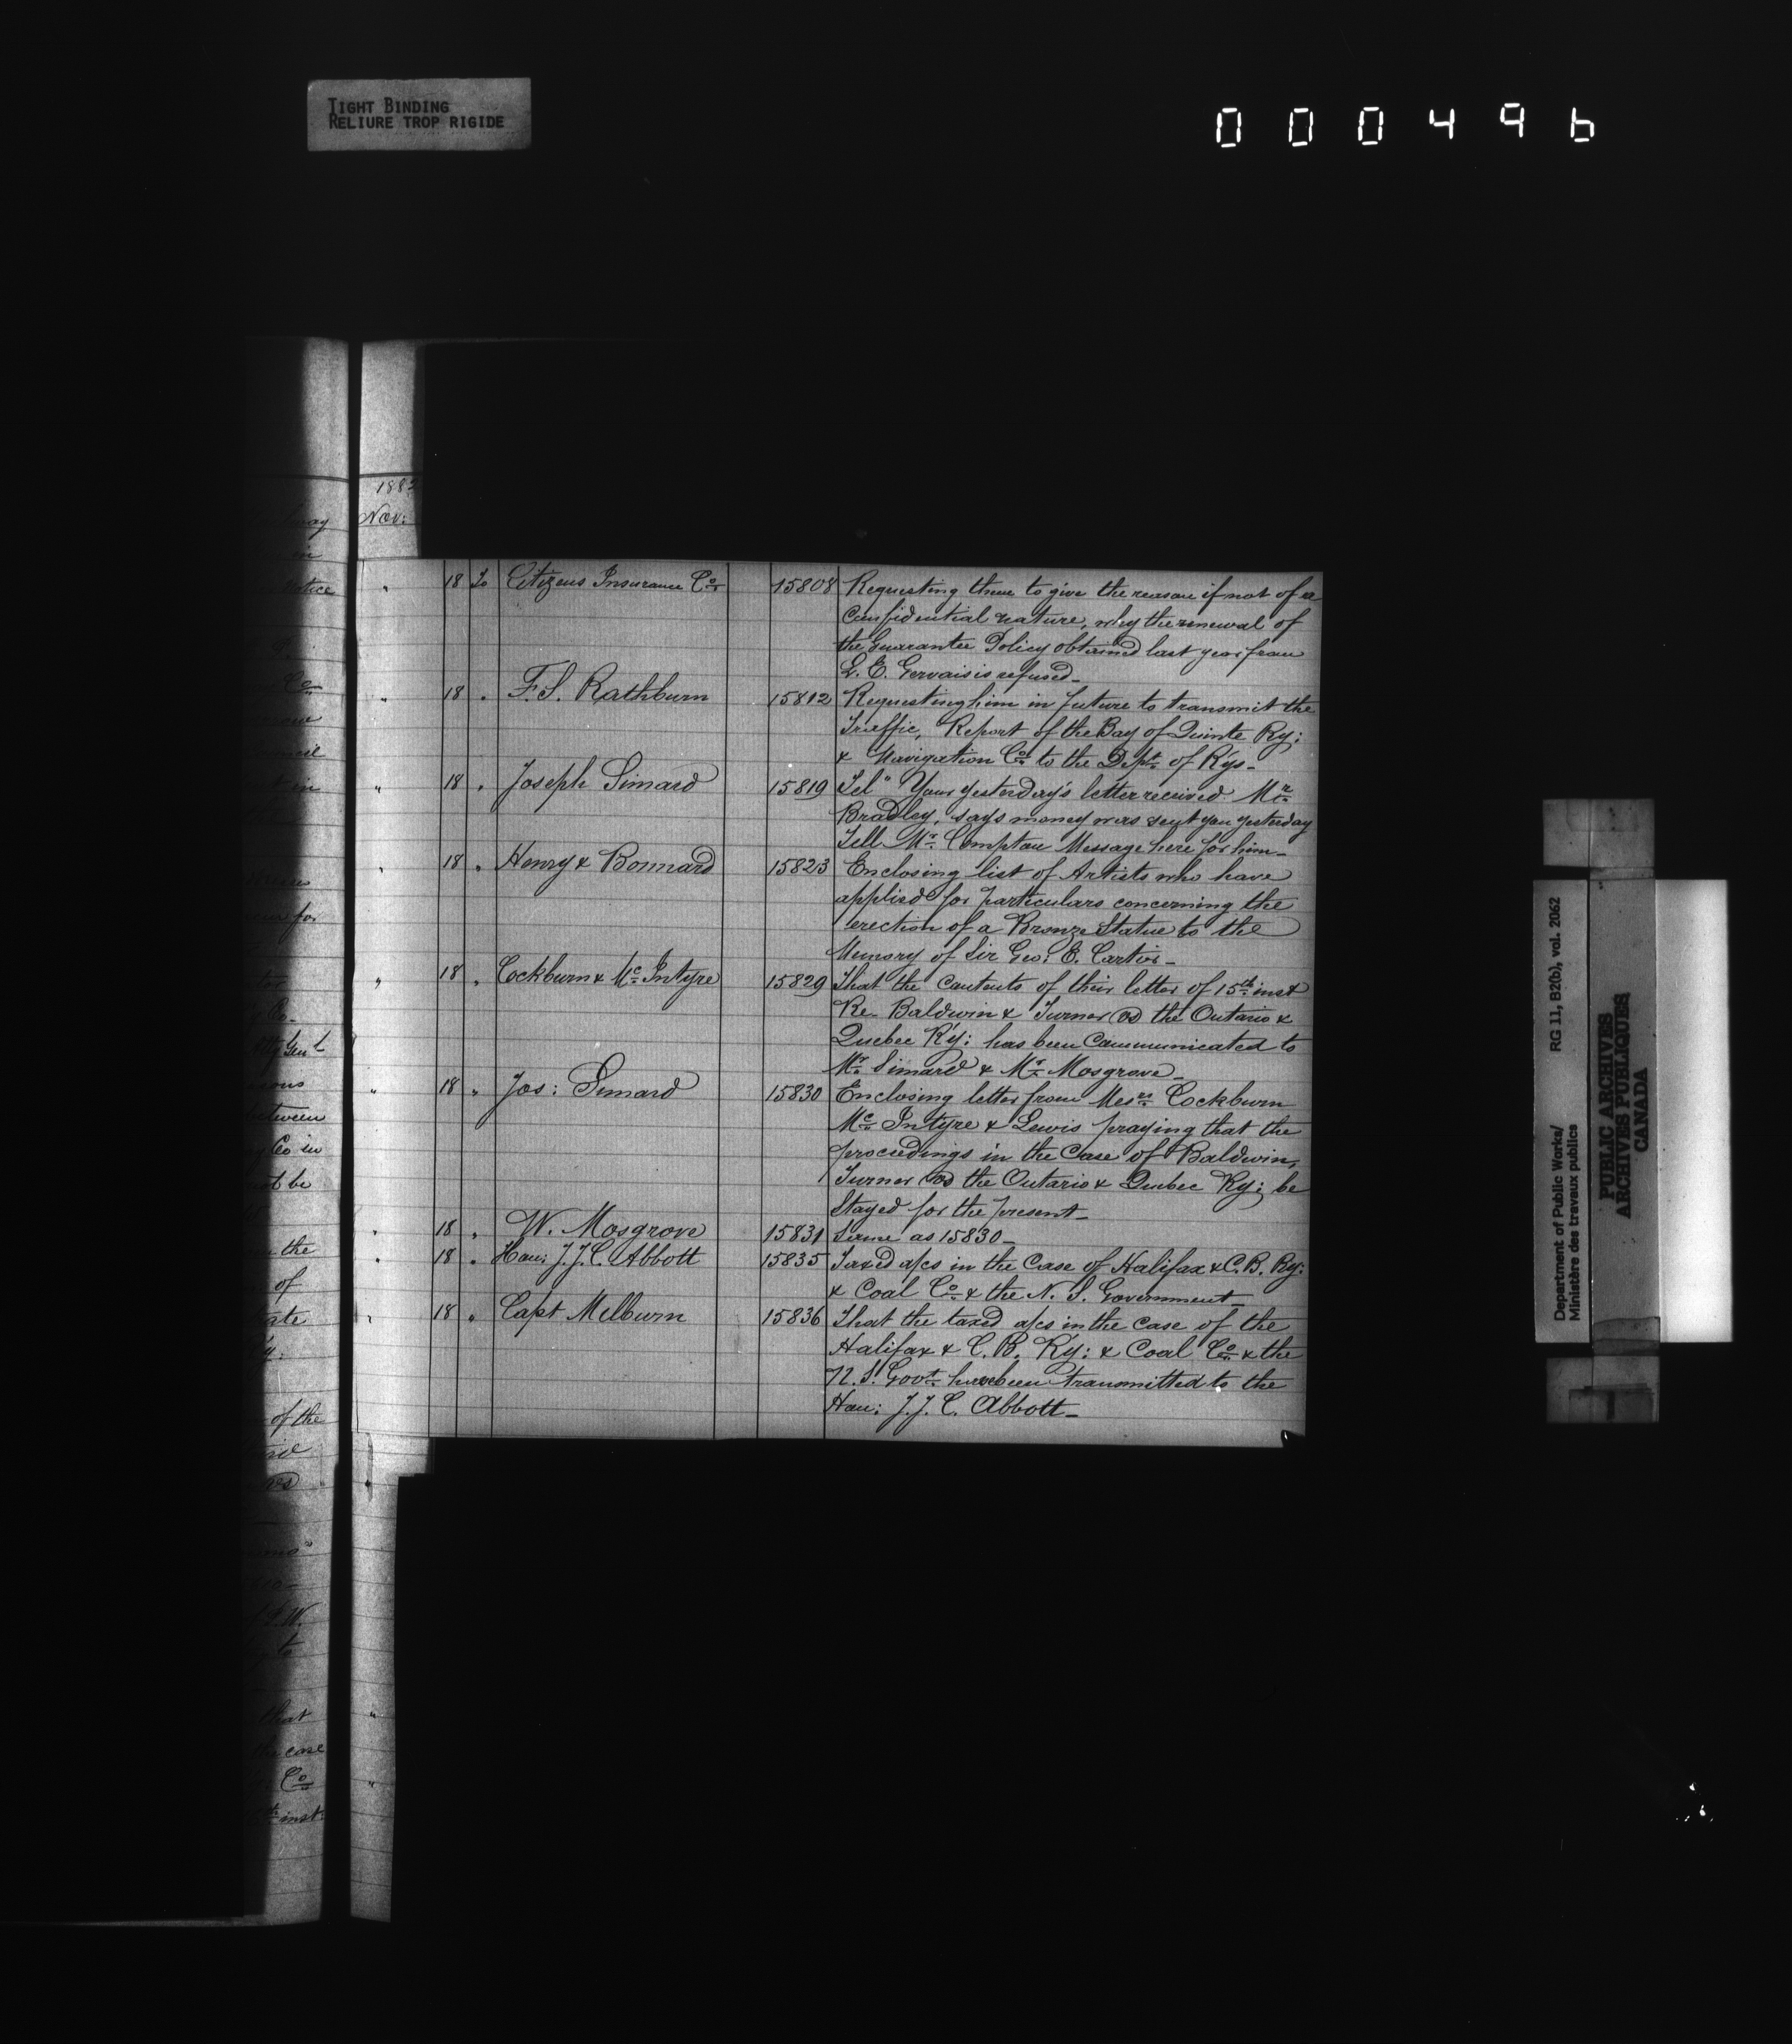 TIGHT BINDING
RELIURE TROP RIGIDE
000496
1883
Nov:
" 18 To Citizens Insurance Co. 15808 Requesting them to give the reason if not of a
confidential nature, why the renewal of
the Guarantee Policy obtained last year from
L. E. Gervais is refused_
" 18 " F. S. Rathburn 15812 Requesting him in future to transmit the
Traffic, Report of the Bay of Quinte Ry:
& Navigation Co. to the Dept. of Rys_
" 18 " Joseph Simard 15819 Tel " Your yesterday's letter received. Mr.
Bradley, says money was sent you yesterday
Tell Mr. Compton Message here for him_
" 18 " Henry & Bonnard 15823 Enclosing list of Artists who have
applied for particulars concerning the
erection of a Bronze Statue to the
Memory of Sir Geo: E. Cartier_
" 18 " Cockburn & McIntyre 15829 That the contents of their letter of 15th inst
Re_ Baldwin & Turner vs the Ontario &
Quebec R'y: has been communicated to
Mr. Simard & Mr. Mosgrove_
" 18 " Jos: Simard 15830 Enclosing letter from Messrs. Cockburn
McIntyre & Lewis praying that the
proceedings in the Case of Baldwin,
Turner vs the Ontario & Quebec Ry; be
Stayed for the present_
" 18 " W. Mosgrove 15831 Same as 15830_
" 18 " Hon: J. J. C. Abbott 15835 Taxed a/cs in the Case of Halifax & C. B. Ry:
& Coal Co. & the N. S. Government_
" 18 " Capt Milburn 15836 That the taxed a/cs in the case of the
Halifax & C. B. R'y: & Coal Co. & the
N. S. Govt. have been transmitted to the
Hon: J. J. C. Abbott_
Notice
Co
between
Co in
not be
in the
of
of the
vs
that
the case
Co
inst:
Department of Public Works/ RG 11, B2(b), vol. 2062
Ministère des travaux publics
PUBLIC ARCHIVES
ARCHIVES PUBLIQUES
CANADA